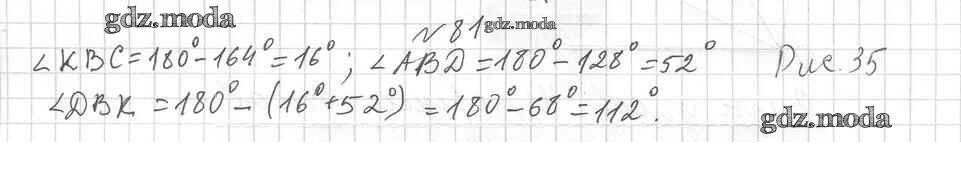 gdz.moda
№ 81 gdz.moda
∠KBC = 180° - 164° = 16° ; ∠ABD = 180° - 128° = 52° Рис. 35
∠DBK = 180° - (16° + 52°) = 180° - 68° = 112°.
gdz.moda